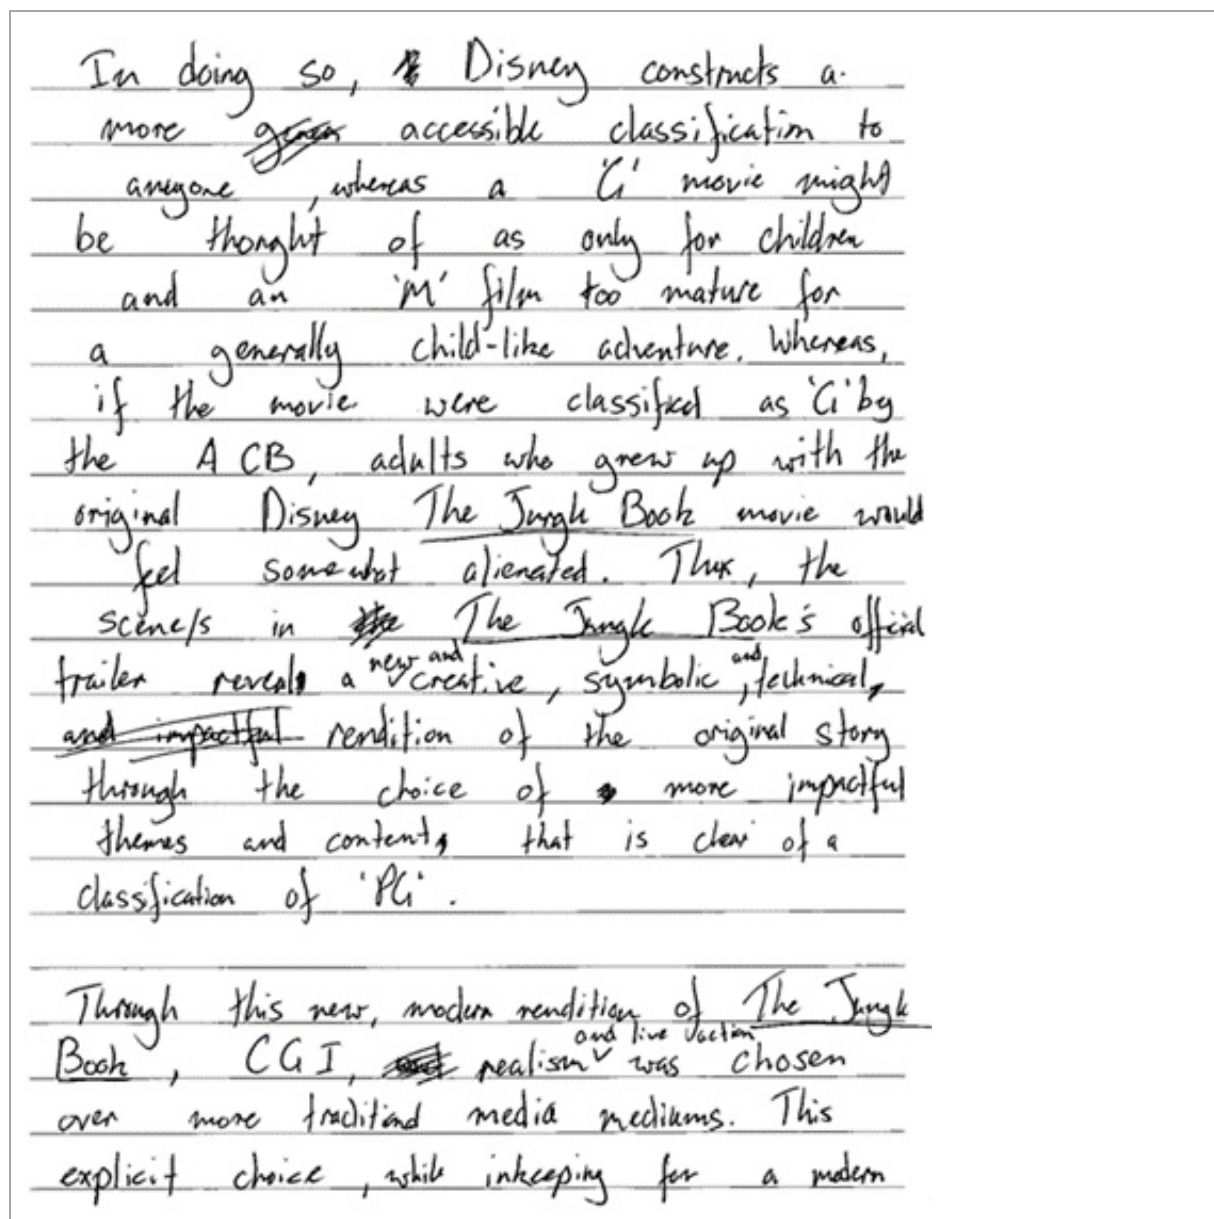 In doing so, Disney constructs a
more accessible classification to
anyone, whereas a 'G' movie might
be thought of as only for children
and an 'M' film too mature for
a generally child-like adventure. Whereas,
if the movie were classified as 'G' by
the ACB, adults who grew up with the
original Disney The Jungle Book movie would
feel somewhat alienated. Thus, the
scene/s in the The Jungle Book's official
trailer reveals a new and creative, symbolic, and technical,
and impactful rendition of the original story
through the choice of more impactful
themes and content, that is clear of a
classification of 'PG'.
Through this new, modern rendition of The Jungle
Book, CGI, realism and live action was chosen
over more traditional media mediums. This
explicit choice, while inkeeping for a modern